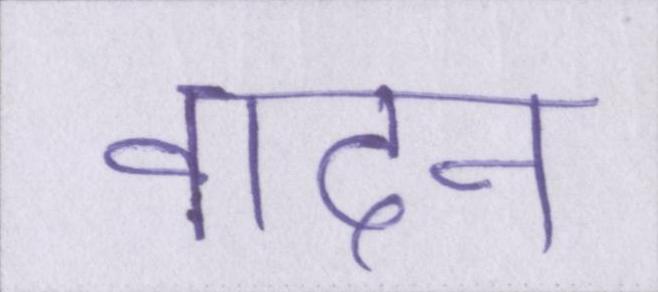 वादन